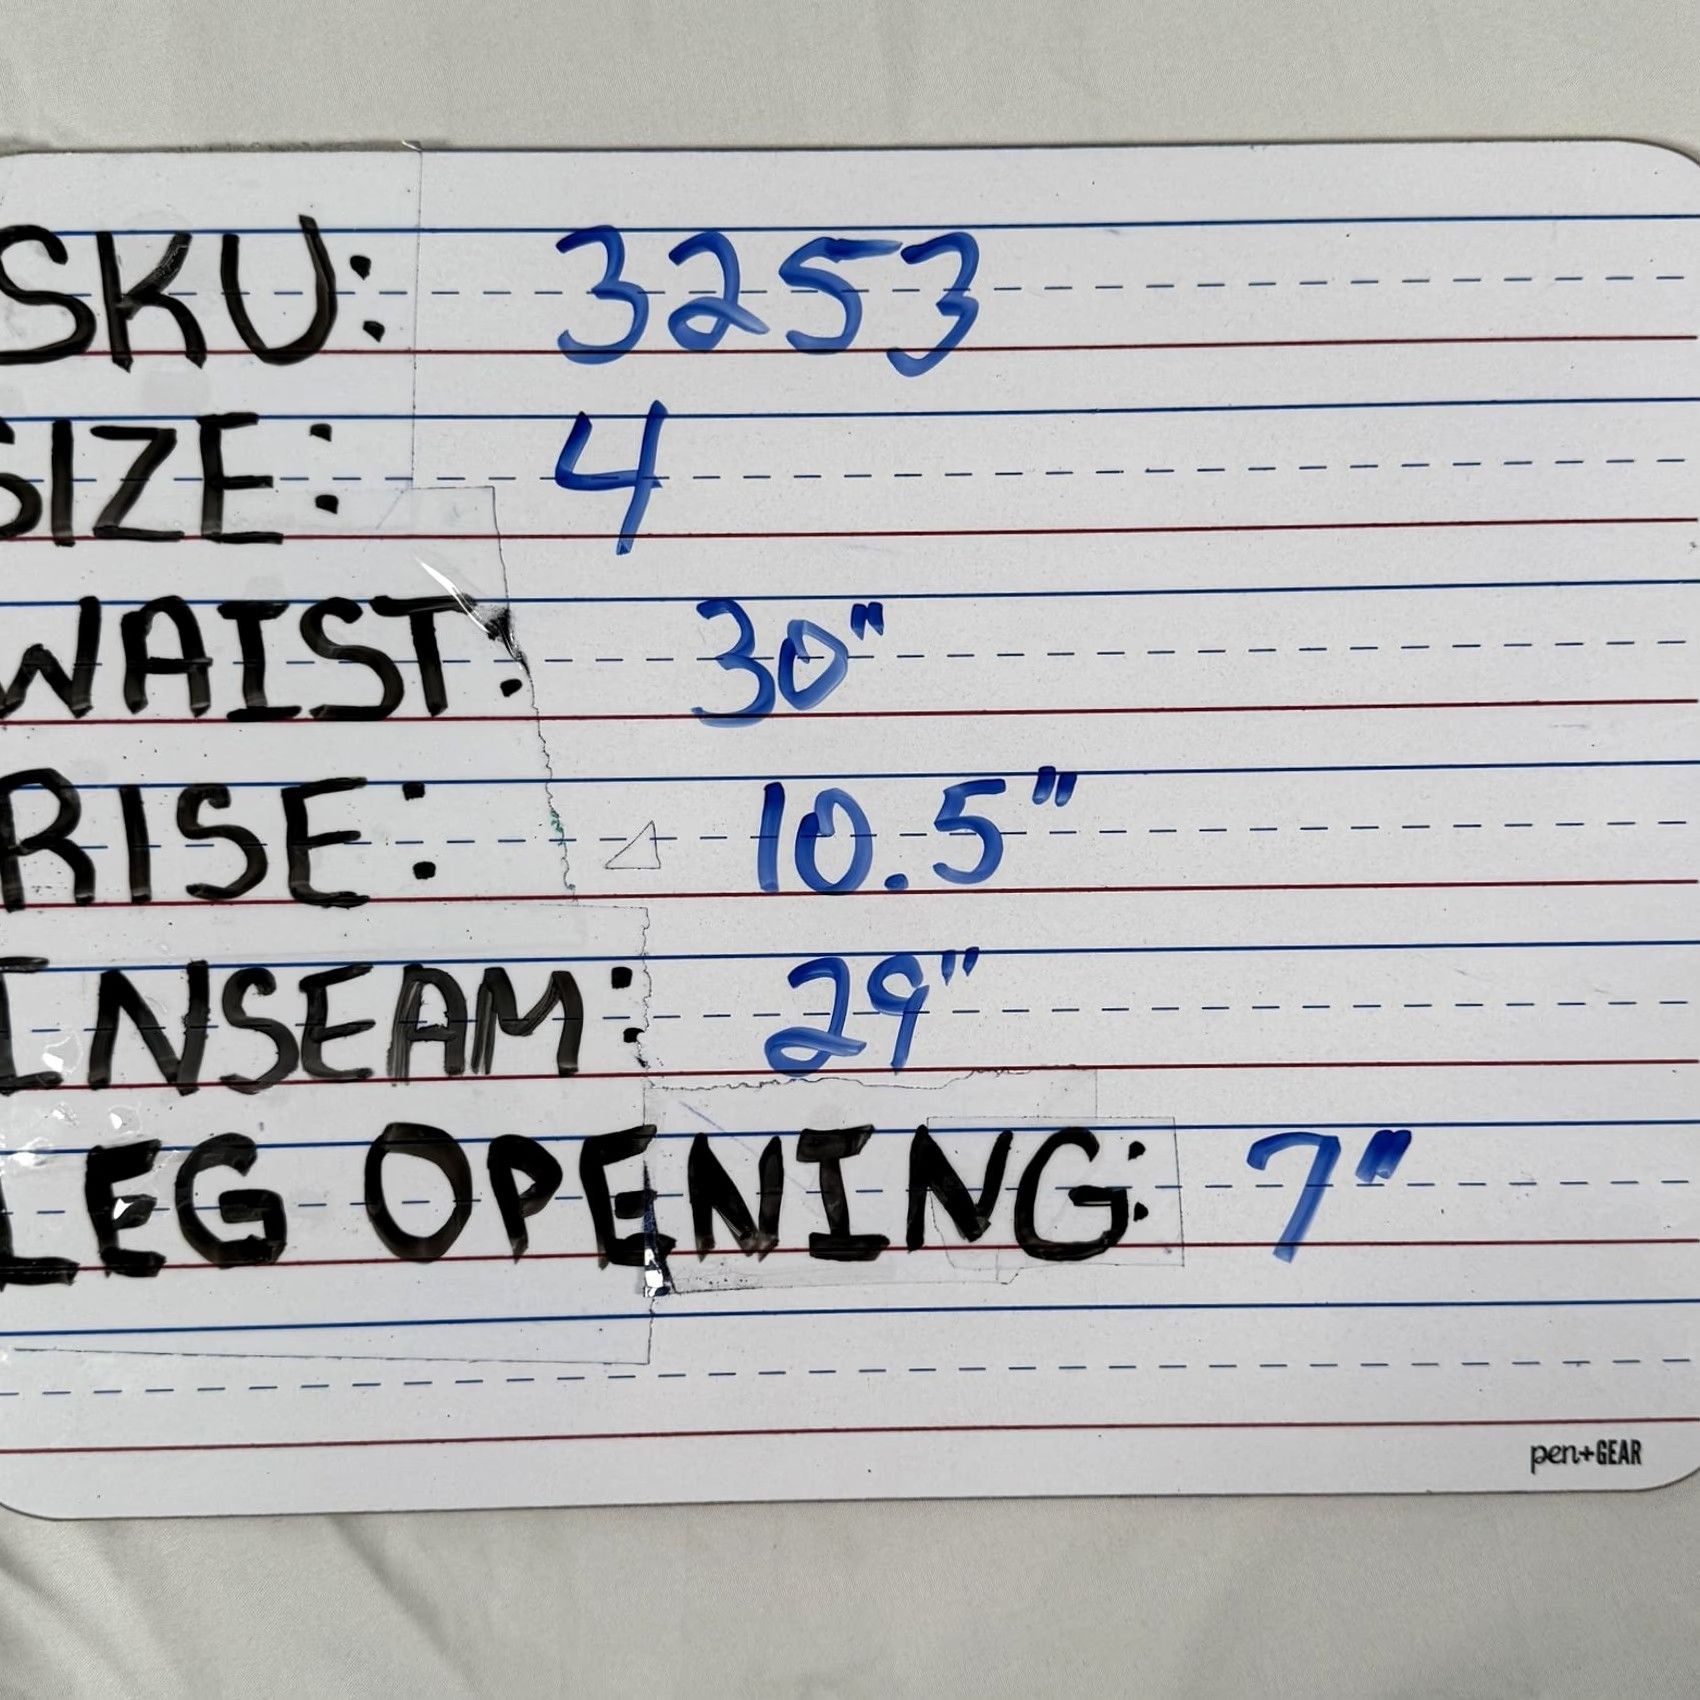 SKU: 3253
SIZE: 4
WAIST: 30"
RISE: 10.5"
INSEAM: 29"
LEG OPENING: 7"
pen+GEAR